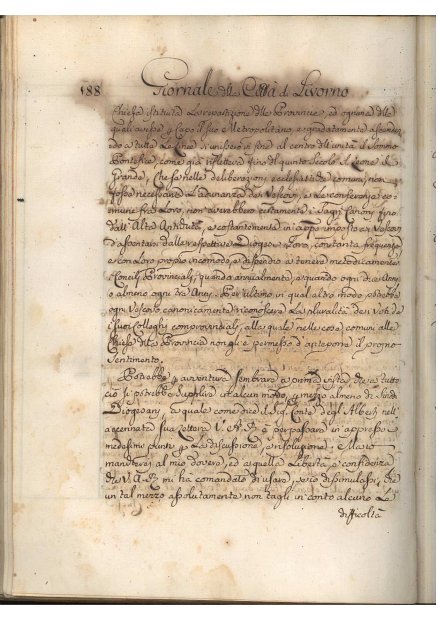 188 Giornale della Città di Livorno
Chiesa istituita La repartizione delle Provincie, ed ognuna delle
quali avesse p Capo il suo Metropolitano, e gradatamente
a tutte Le si unissero in fine al centro dell'unità il Sommo
Pontefice, come già rifletteva fino del quinto Secolo S. Leone il
Grande, Che se nelle deliberazioni ecclesiastiche comuni, non
fosse necessaria L'adunanza de Vescovi, e Le conferenze co-
muni fra Loro, non avrebbero certamente i Sagri Canoni fino
dall'Alta Antichità, e costantemente in apps imposto a Vescovi
d'assentarsi dalle respettive Diogesi Loro, con tanta frequenza
e con Loro proprio incomodo, e dispendio a tenere metodicamente
Concilj Provinciali, quando annualmente, e quando ogni due Anni,
o almeno ogni tre Anni. Per ultimo in qual altro modo potrebbe
ogni Vescovo canonicamente riconoscere La pluralità de Voti de
i suoi Colleghi comprovinciali, alla quale nelle cose comuni alle
Chiese della Provincia non gli è permesso d'anteporre il proprio
Sentimento.
Potrebbe p avventura Sembrare a prima vista che a tutto
ciò si potrebbe supplire in alcun modo p mezzo almeno di Sinodi
Diogesani, a quale come dice il Sig. Conte degl'Alberti nell'
accennata sua Lettera V. A. R. è per passare in appresso
medesimi punti p La discussione, e risoluzione: Ma io
mancherei al mio dovere, ed a quella Libertà, e confidenza
che V. A. R. mi ha comandato di usare, se io dissimulassi, che
un tal mezzo assolutamente non tagli in conto alcuno Le
difficoltà